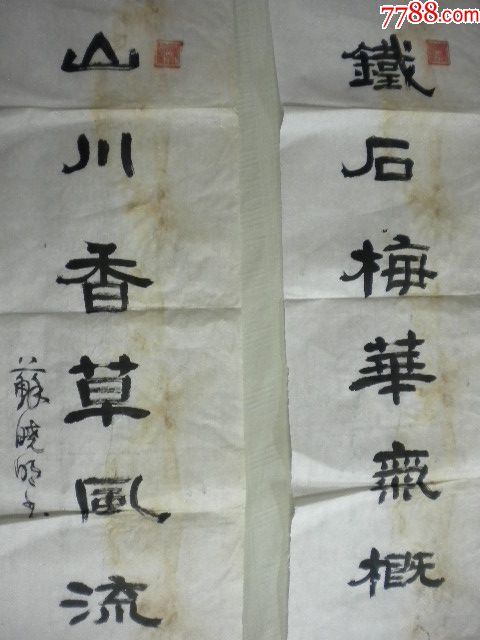 7788.com
鐵石梅華氣概
山川香草風流
蘇曉明书